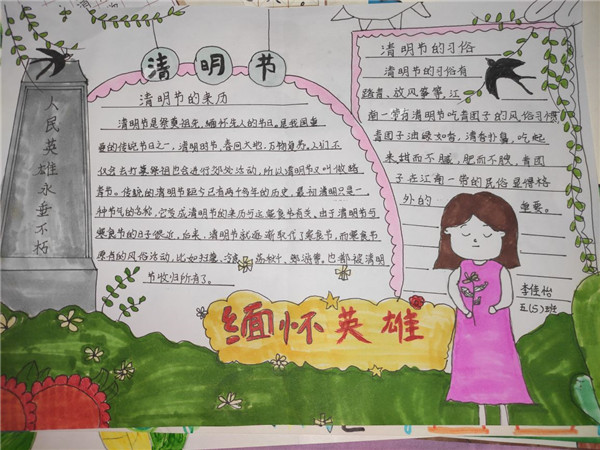 清明节
人民英雄永垂不朽
清明节的来历
清明节是祭奠祖先,缅怀先人的节日。是我国重
要的传统节日之一,清明时节,春回大地,万物复苏,人们不
仅会去扫墓祭祖也会进行郊游活动,所以清明节又叫做踏
青节。传统的清明节距今已有两千多年的历史,最初清明只是一
种节气的名称,它变成清明节的来历与寒食节有关,由于清明节与
寒食节的日子很近,后来,清明节就逐渐取代了寒食节,而寒食节
原有的风俗活动,比如扫墓、冷食、荡秋千、等。也都被清明
节收归所有了。
清明节的习俗
清明节的习俗有
踏青、放风筝等,江
南一带有清明节吃青团子的风俗习惯
青团子油绿如玉,清香扑鼻,吃起
来甜而不腻,肥而不腴,青团
子在江南一带的民俗显得格
外的重要。
李佳怡
五(5)班
缅怀英雄